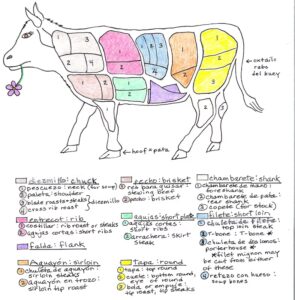 oxtail:
rabo
del buey
hoof = pata
1
2
3
4
1
2
1
3
2
4
1
2
1
2
3
1
2
1
2
diezmillo: chuck
1 pescuezo: neck (for soup)
2 paleta: shoulder
3 blade roasts + steaks
4 cross rib roast
} diezmillo
entrecot: rib
1 costillar: rib roast or steaks
2 agujas cortas: short ribs
falda: flank
Aguayón: sirloin
1 chuleta de aguayón: sirloin steaks
2 aguayón en trozo: sirloin tip roast
pecho: brisket
1 res para guisar: stewing beef
2 pecho: brisket
agujas: short plate
1 agujas cortas: short ribs
2 arrachera: skirt steak
tapa: round
1 tapa: top round
2 cuete: bottom round, eye of round
3 bola or empuje: tip roast, tip steaks
chambarete: shank
1 chambarete de mano: foreshank
2 chambarete de pata: rear shank
3 copete (for stock)
filete: short loin
1 chuleta de filete: top loin steak
2 T-bone: T-Bone
3 chuleta de dos lomos: porterhouse
* filet mignon may be cut from either of these
4 retazo con hueso: soup bones